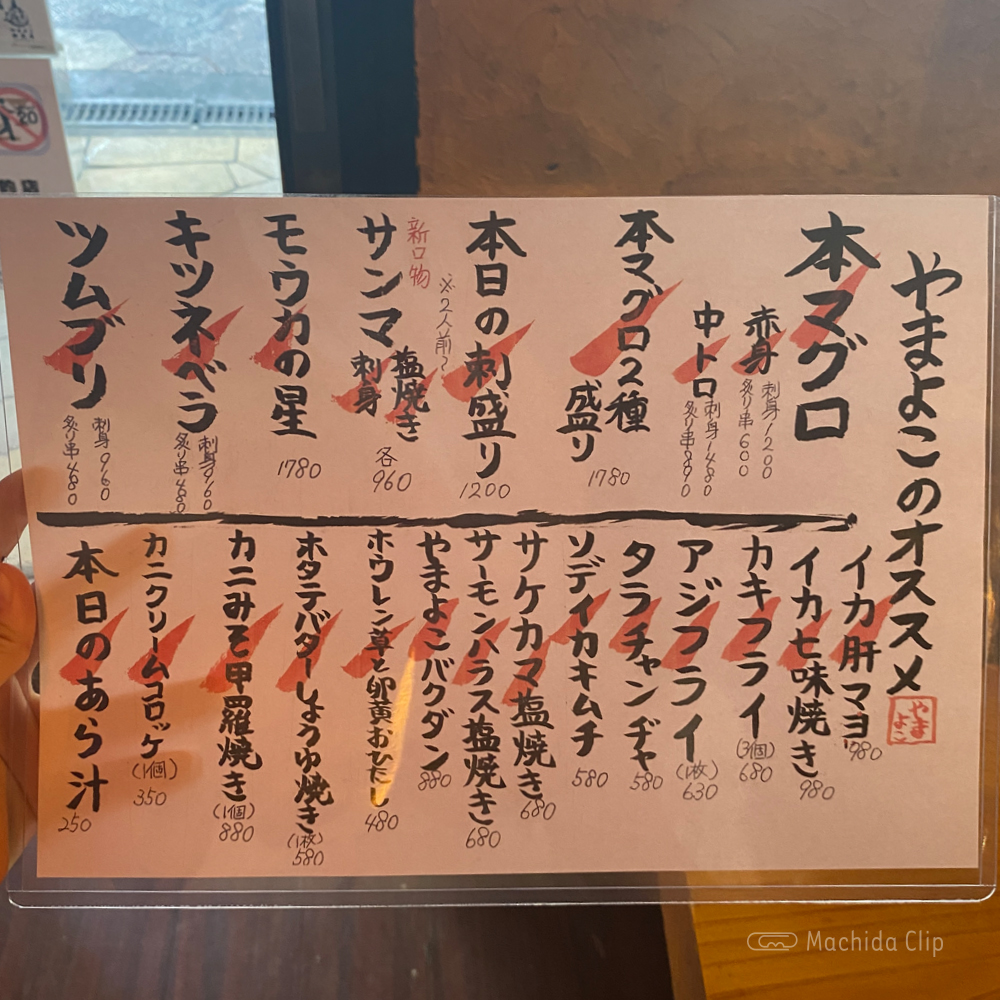 やまよこのオススメ
やまよこ
本マグロ
赤身
刺身1200
炙り串600
中トロ
刺身1480
炙り串890
本マグロ2種
盛り
1780
本日の刺盛り
※2人前〜
1200
新口物
サンマ
塩焼き
刺身
各
960
モウカの星
1780
キツネベラ
刺身960
炙り串480
ツムブリ
刺身960
炙り串480
イカ肝マヨ
980
イカ七味焼き
980
カキフライ
(3個)
680
アジフライ
(1枚)
630
タラチャンヂャ
580
ソデイカキムチ
580
サケカマ塩焼き
680
サーモンハラス塩焼き
680
やまよこバクダン
880
ホウレン草と卵黄おひたし
480
ホタテバターしょうゆ焼き
(1枚)
580
カニみそ甲羅焼き
(1個)
880
カニクリームコロッケ
(1個)
350
本日のあら汁
250
20
店
Machida Clip